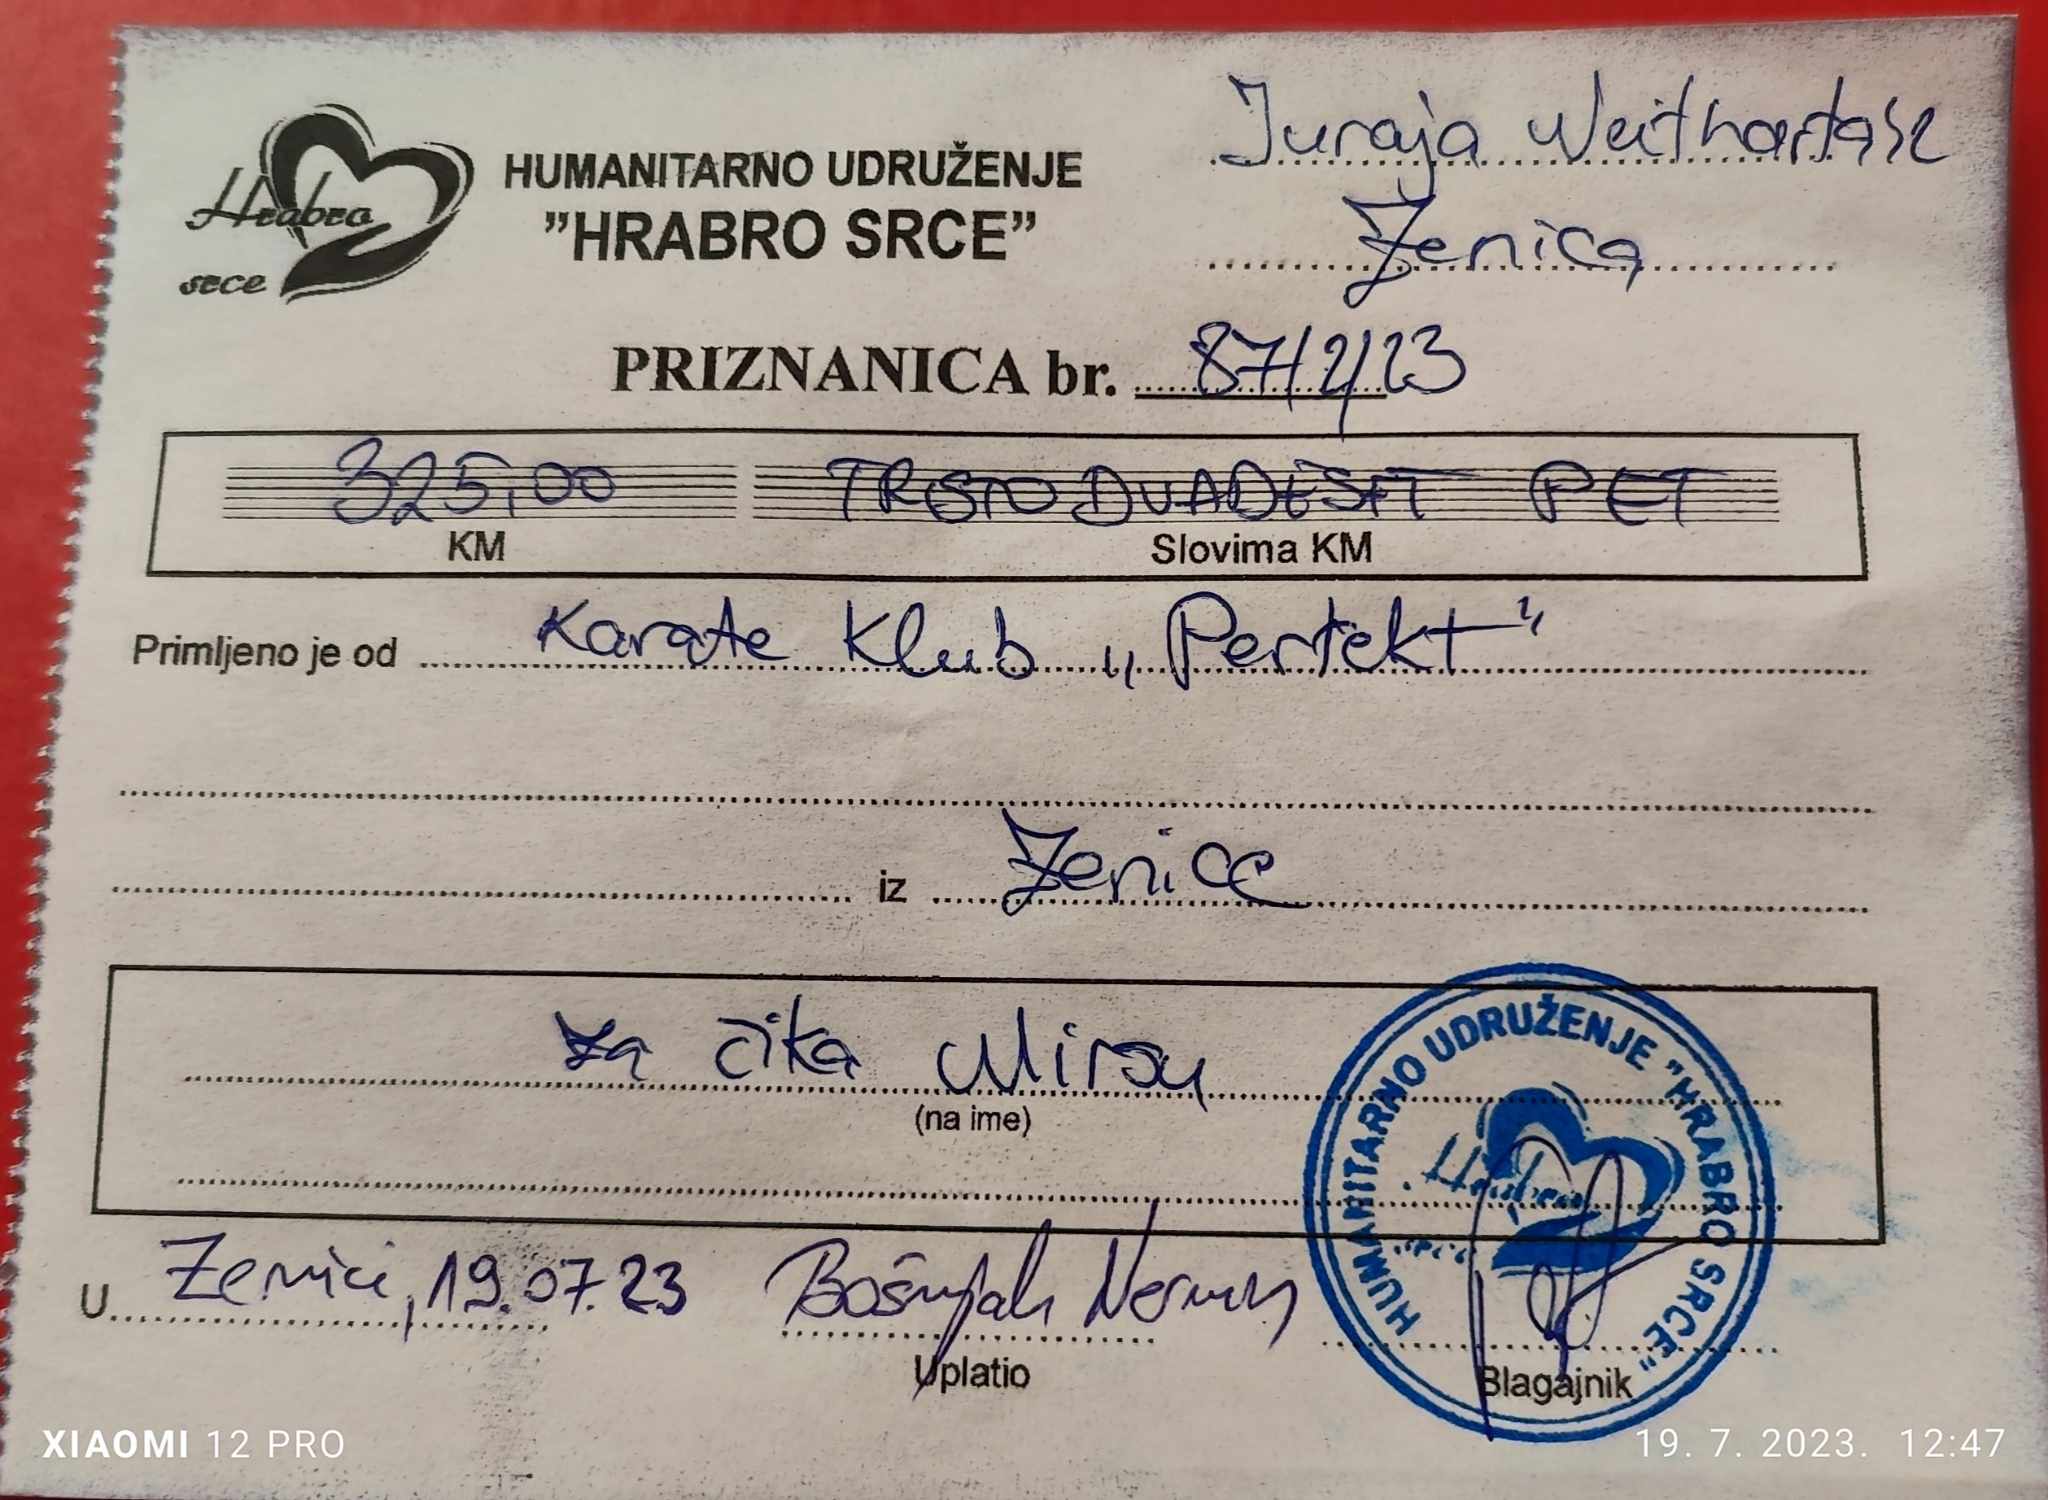 Hrabro
srce
HUMANITARNO UDRUŽENJE
"HRABRO SRCE"
Juraja
Zenica
PRIZNANICA br. 87/2/23
325,00 TRISTO DVADESET PET
KM Slovima KM
Primljeno je od Karate Klub „Perfekt“
iz Zenice
za čika Mirsu
(na ime)
U Zenici, 19.07.23 Bošnjak Nermin
Uplatio Blagajnik
HUMANITARNO UDRUŽENJE "HRABRO SRCE"
Hrabro
srce
XIAOMI 12 PRO 19. 7. 2023. 12:47